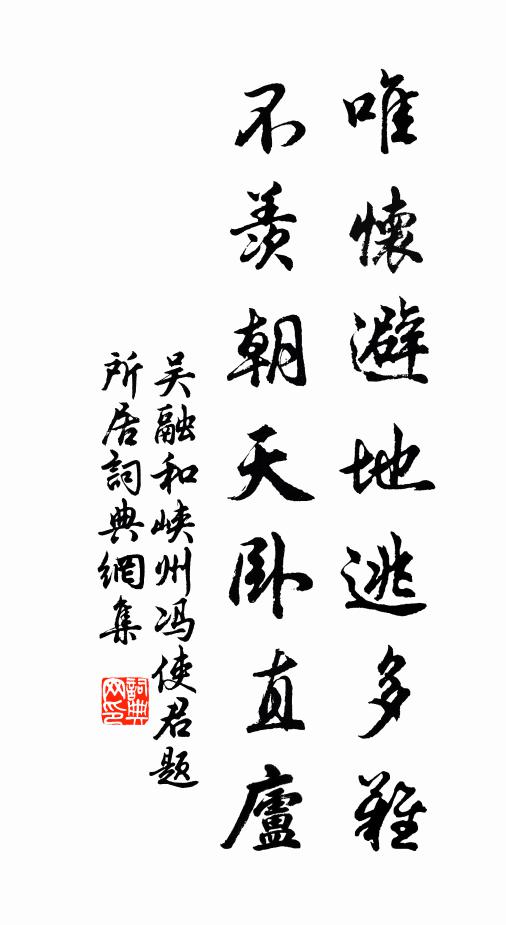 唯懷避地逃多難
不羨朝天臥直廬
吳融和峽州冯使君題
所居詞典網集
詞典网印